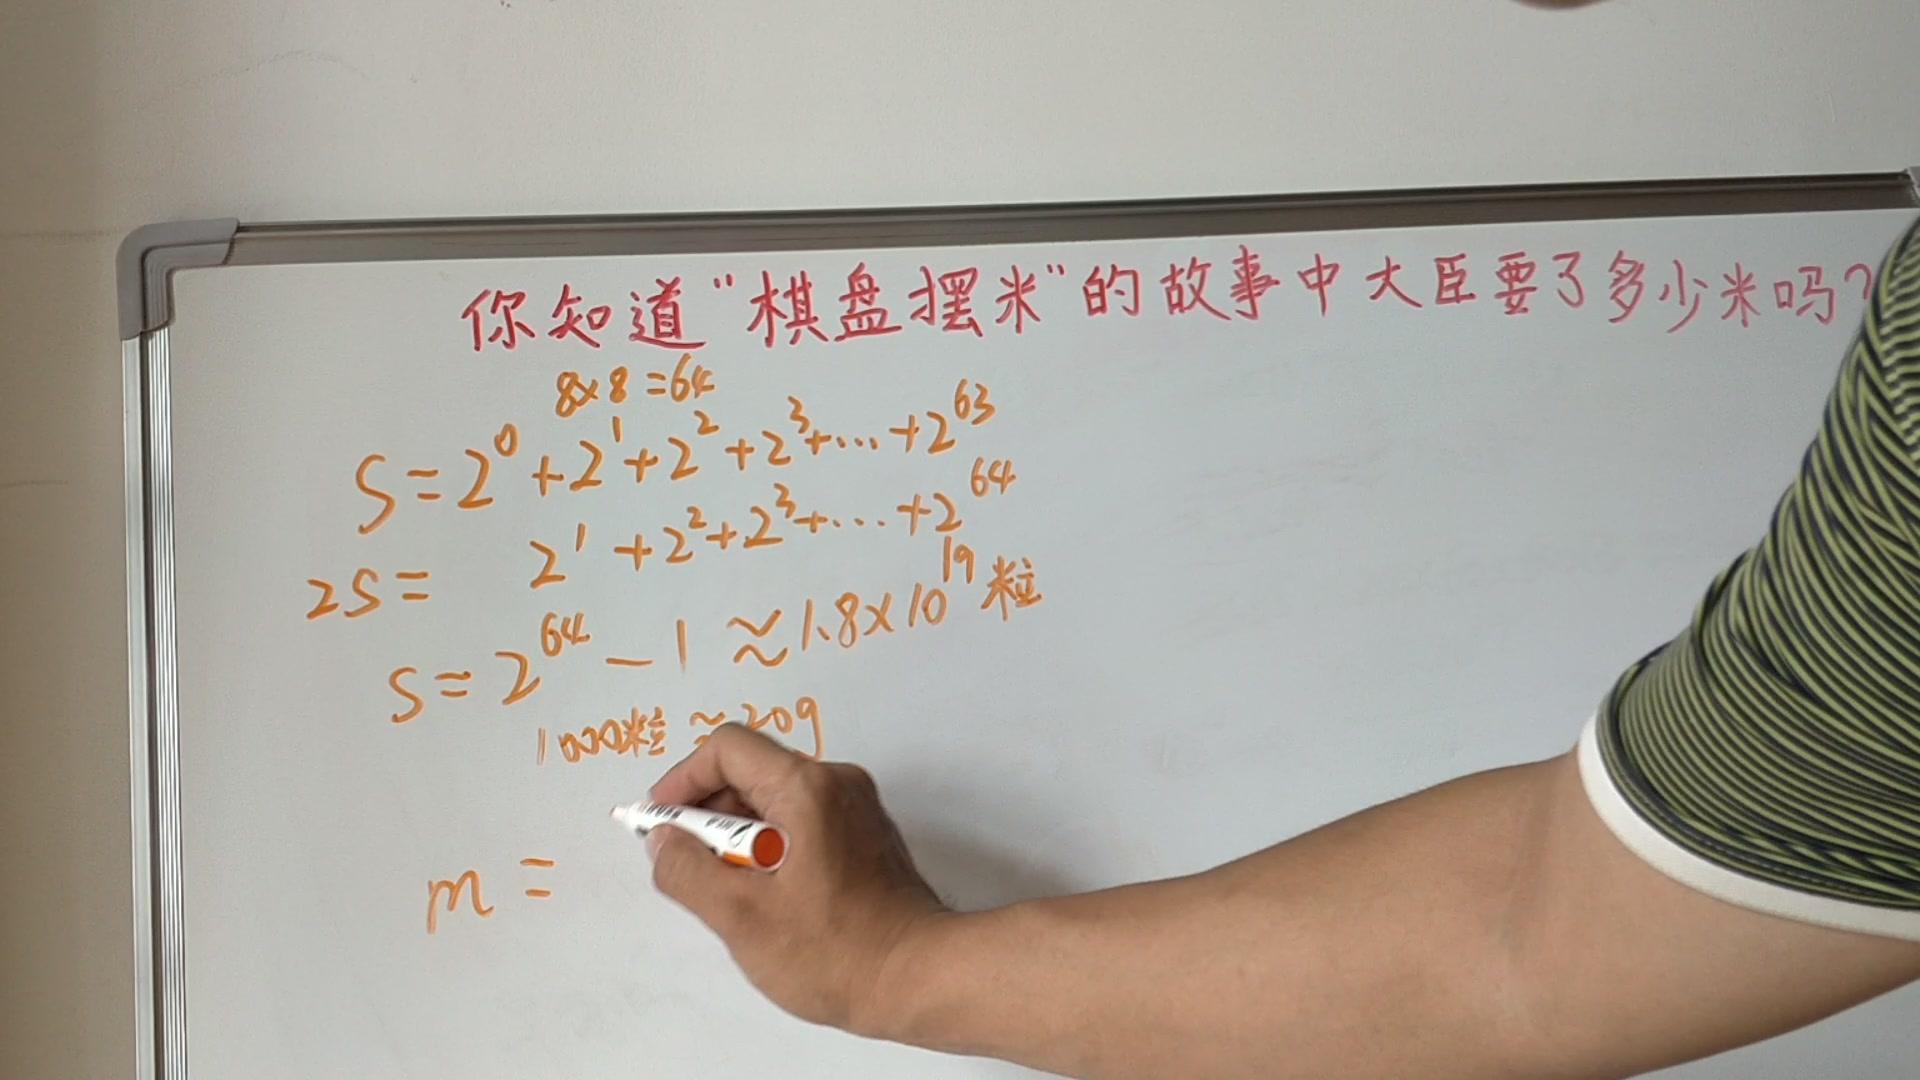 你知道"棋盘摆米"的故事中大臣要了多少米吗?
8×8=64
S=2⁰+2¹+2²+2³+…+2⁶³
2S= 2¹+2²+2³+…+2⁶⁴
S=2⁶⁴-1≈1.8×10¹⁹粒
1000粒≈20g
m=